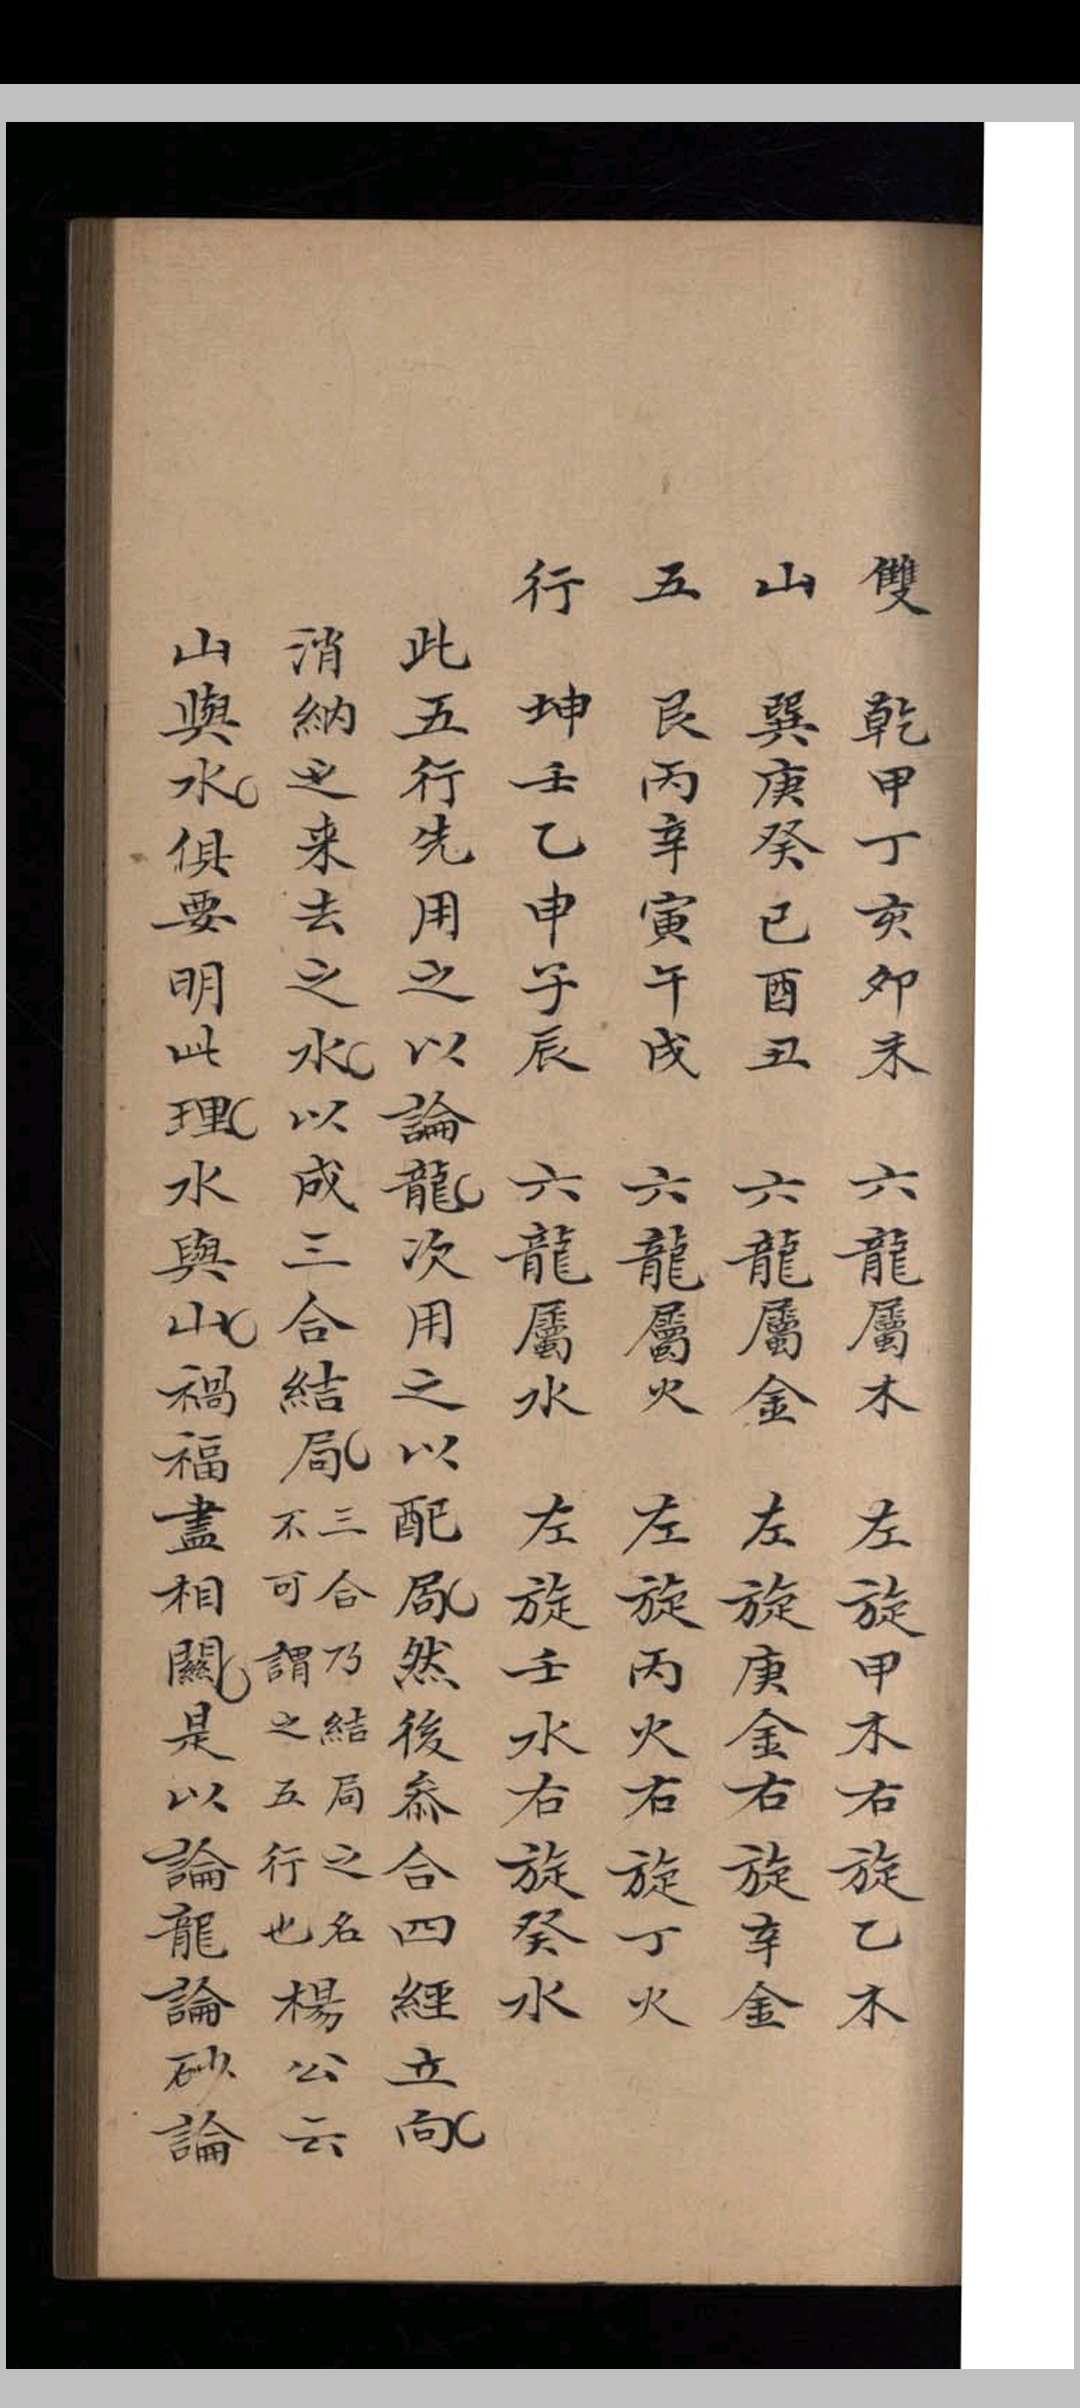 雙 乾甲丁亥卯未 六龍屬木 左旋甲木右旋乙木
山 巽庚癸巳酉丑 六龍屬金 左旋庚金右旋辛金
五 艮丙辛寅午戌 六龍屬火 左旋丙火右旋丁火
行 坤壬乙申子辰 六龍屬水 左旋壬水右旋癸水
此五行先用之以論龍次用之以配局然後叅合四經立向
消納之来去之水以成三合結局三合乃結局之名不可謂之五行也楊公云
山與水俱要明此理水與山禍福盡相關是以論龍論砂論